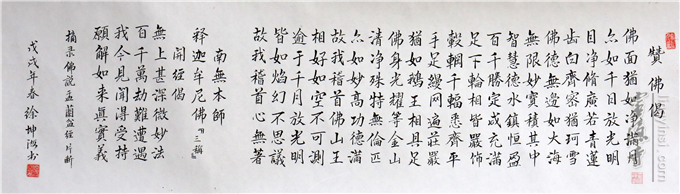 赞佛偈
佛面猶如淨滿月
亦如千日放光明
目淨脩廣若青蓮
齒白齊密猶珂雪
佛德無邊如大海
無限妙寶積其中
智慧德水鎮恒盈
百千勝定咸充滿
足下輪相皆嚴飾
轂輞千輻悉齊平
手足縵网遍莊嚴
猶如鵝王相具足
佛身光耀等金山
清淨殊特無倫匹
亦如妙高功德滿
故我稽首佛山王
相好如空不可測
逾于千月放光明
皆如焰幻不思議
故我稽首心無著
南無本師
釋迦牟尼佛『三稱』
開經偈
無上甚深微妙法
百千萬劫難遭遇
我今見聞得受持
願解如來真實義
摘录佛説盂蘭盆經片斷
戊戌年春 徐坤 书